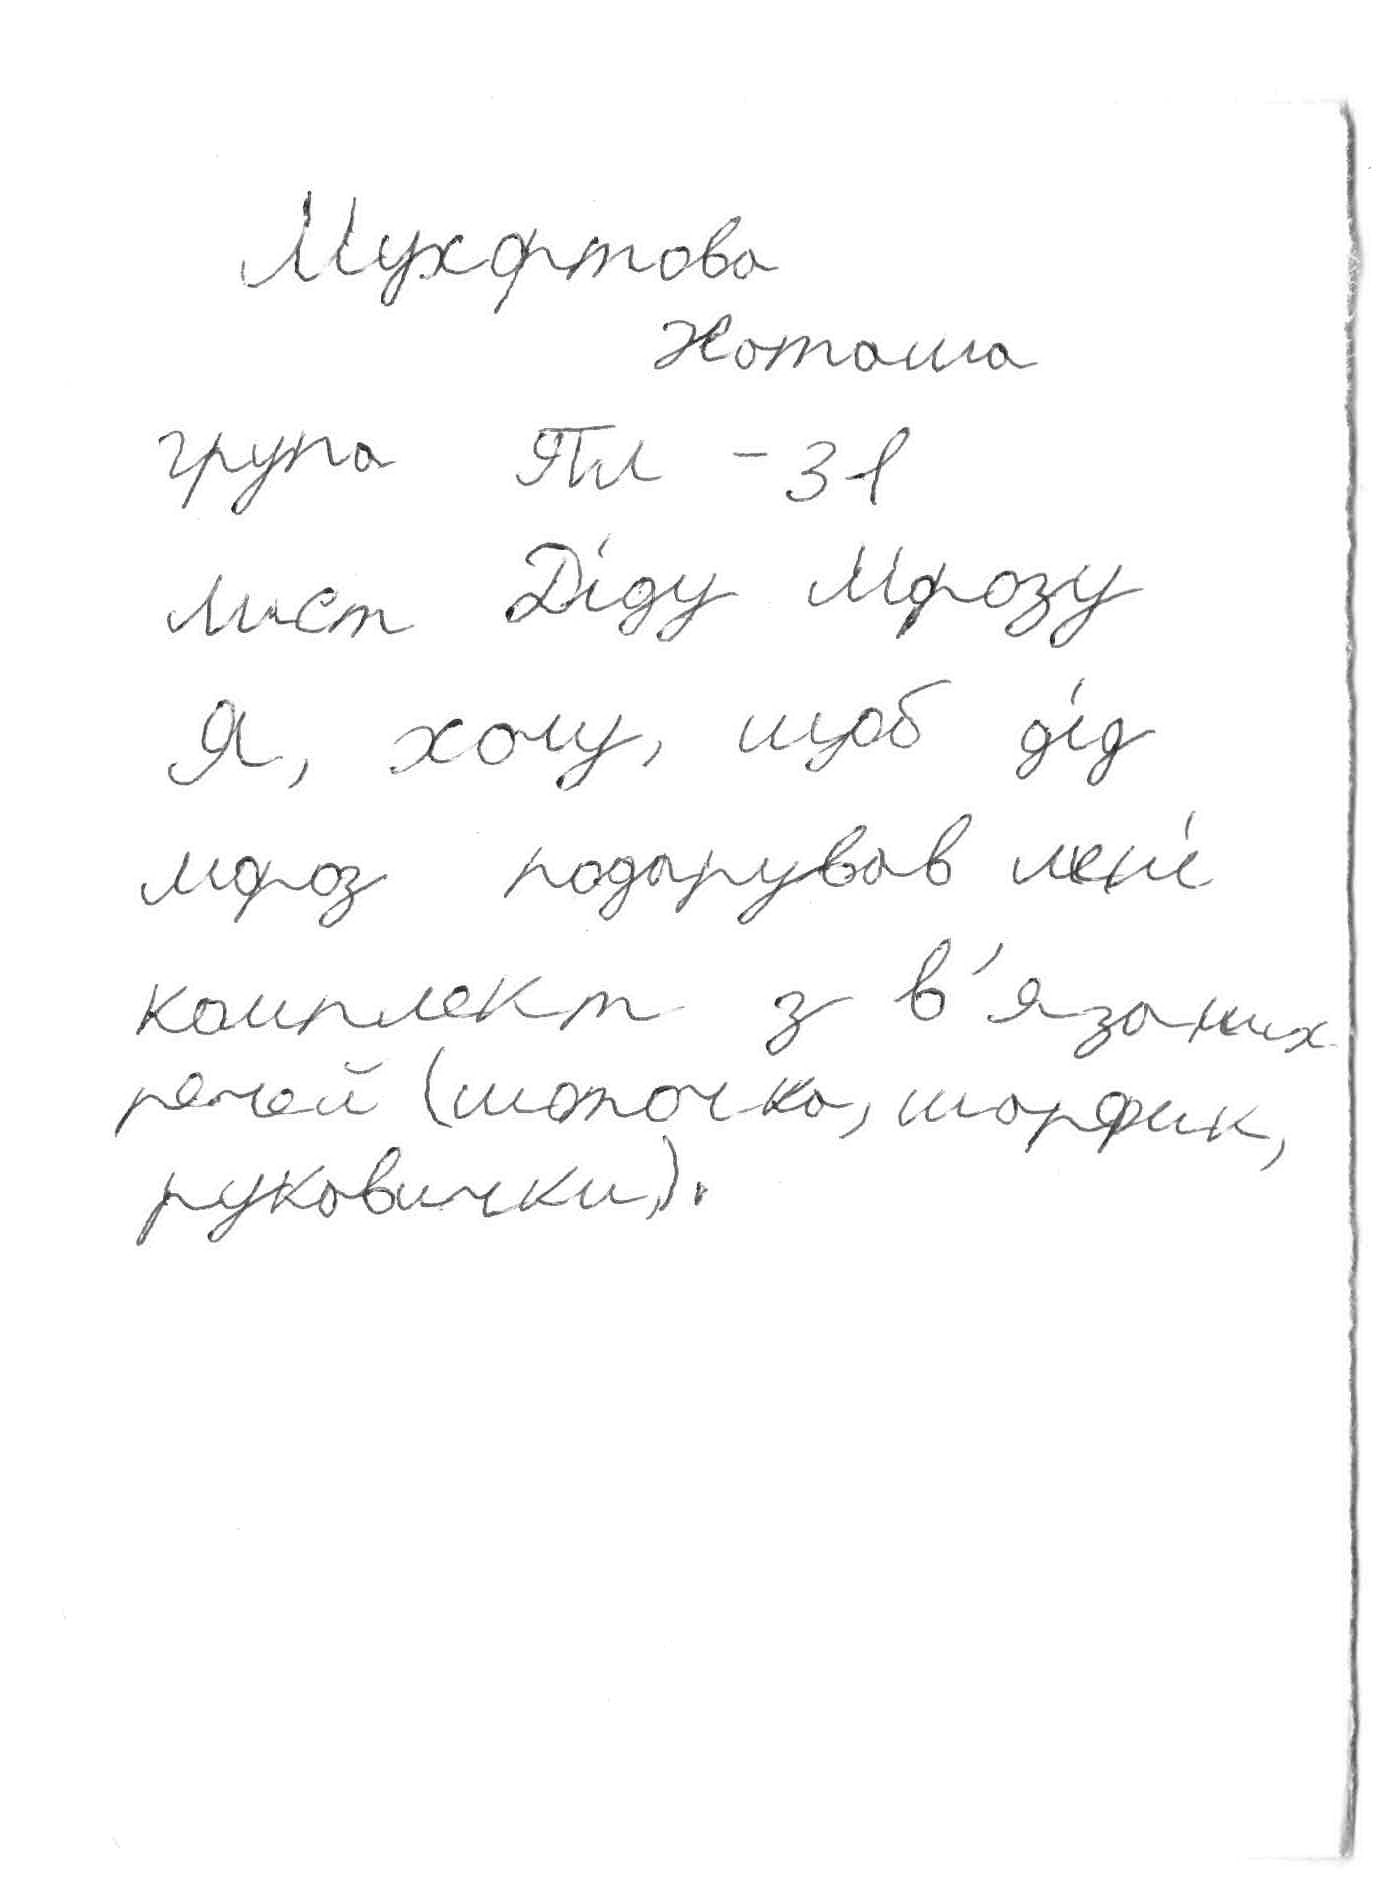 Мухортова
Наташа
група ПЛ - 31
лист Діду Мрозу
Я, хочу, щоб дід
мроз подарував мені
комплект з в'язаних
речей (шапочка, шарфик,
рукавички,).